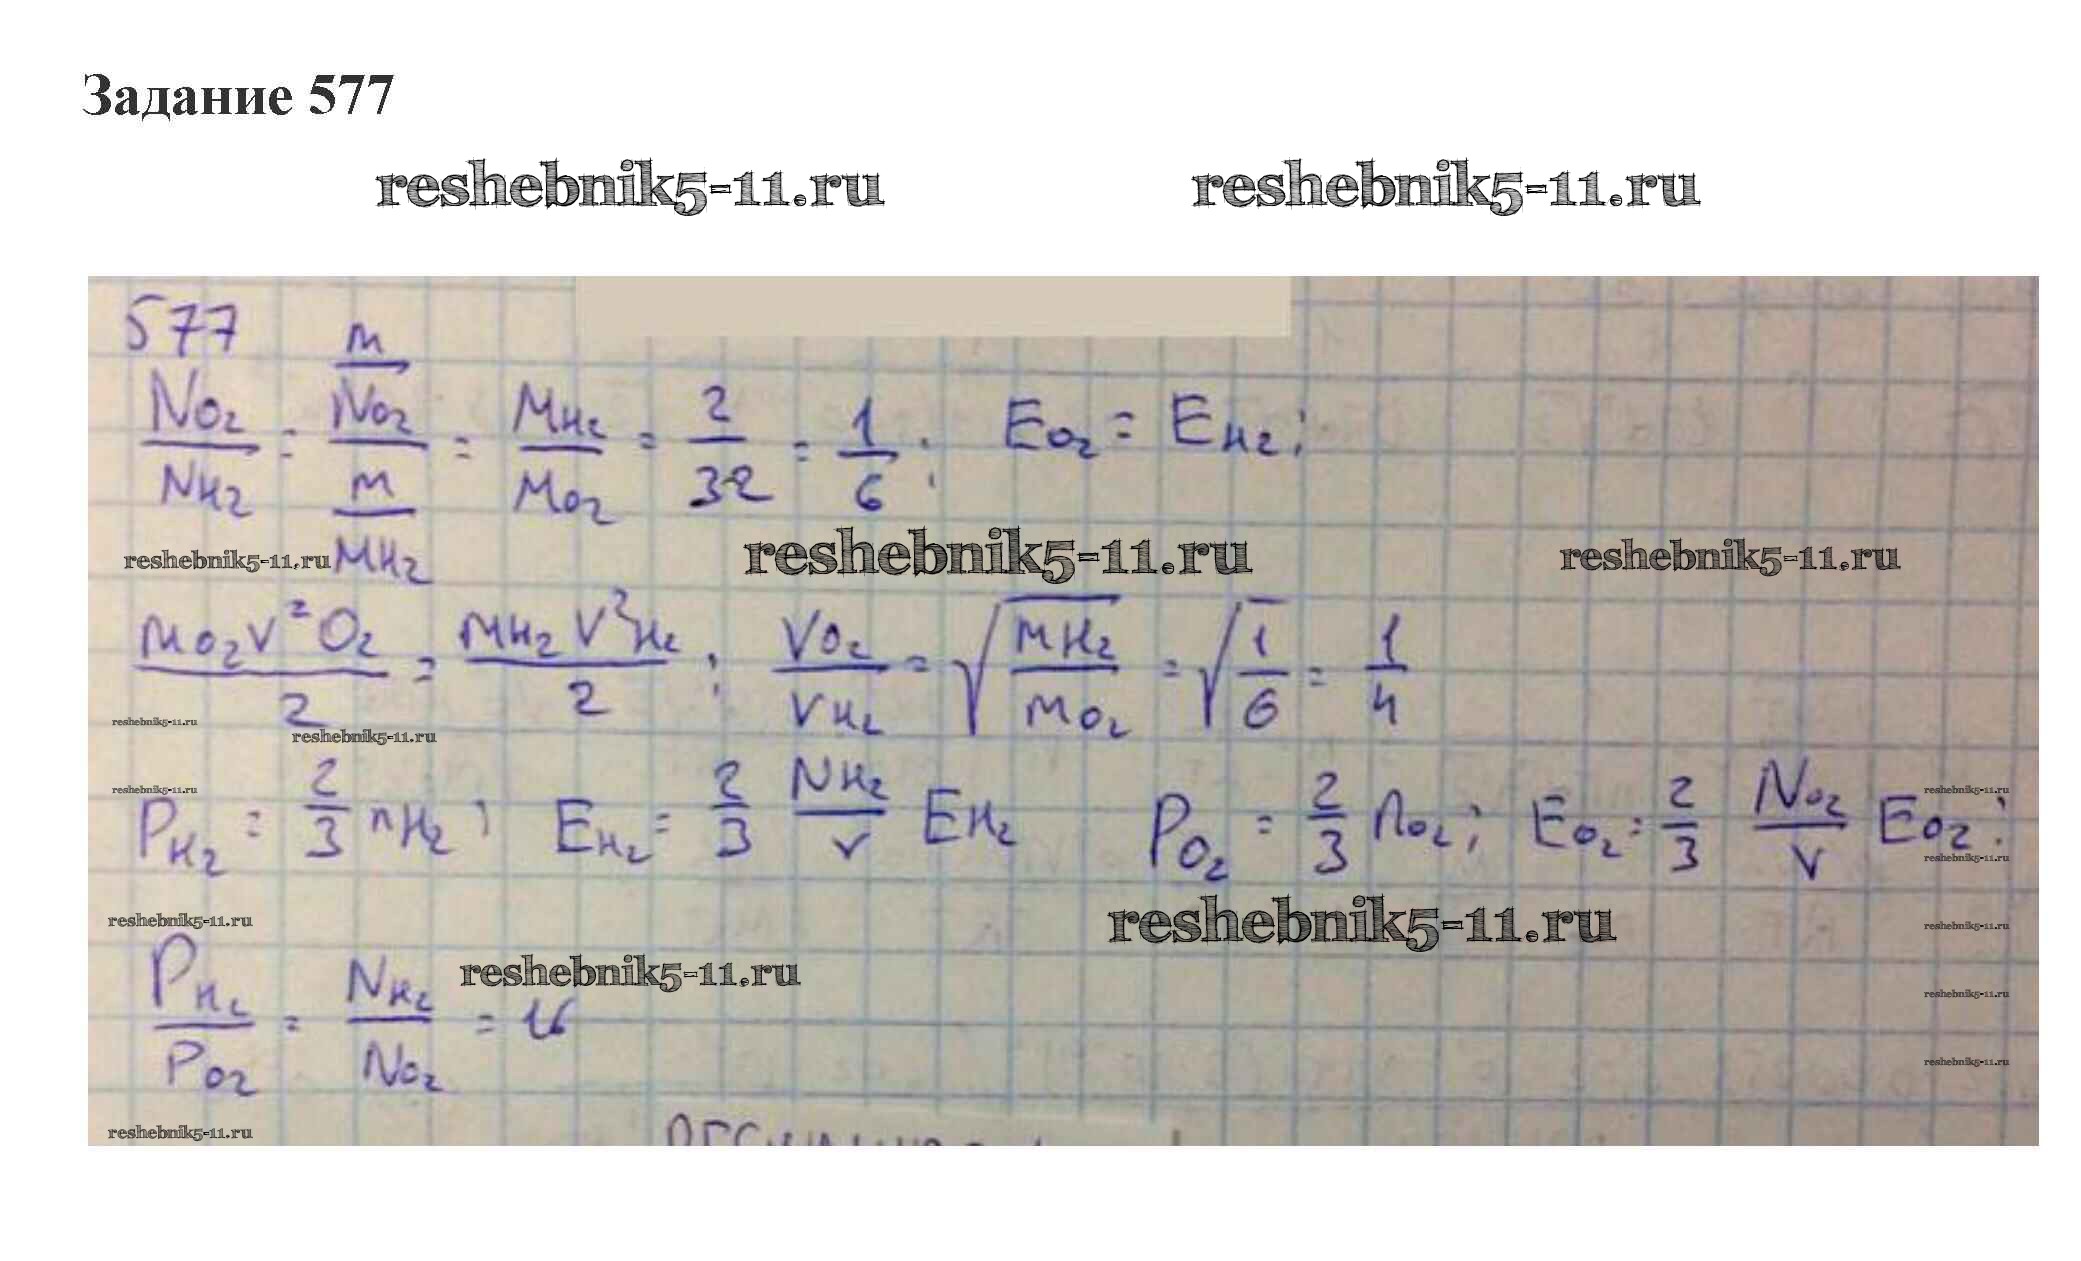 Задание 577
reshebnik5-11.ru reshebnik5-11.ru
577
NO2/NH2 = (m/NO2)/(m/MH2) = MH2/MO2 = 2/32 = 1/6; EO2 = EH2;
reshebnik5-11.ru reshebnik5-11.ru reshebnik5-11.ru
mO2V²O2/2 = mH2V²H2/2; VO2/VH2 = √(mH2/mO2) = √(1/6) = 1/4
reshebnik5-11.ru
reshebnik5-11.ru
reshebnik5-11.ru reshebnik5-11.ru
PH2 = 2/3 nH2; EH2 = 2/3 NH2/v EH2 PO2 = 2/3 nO2; EO2 = 2/3 NO2/v EO2;
reshebnik5-11.ru
reshebnik5-11.ru reshebnik5-11.ru reshebnik5-11.ru
reshebnik5-11.ru
PH2/PO2 = NH2/NO2 = 16
reshebnik5-11.ru
reshebnik5-11.ru
reshebnik5-11.ru